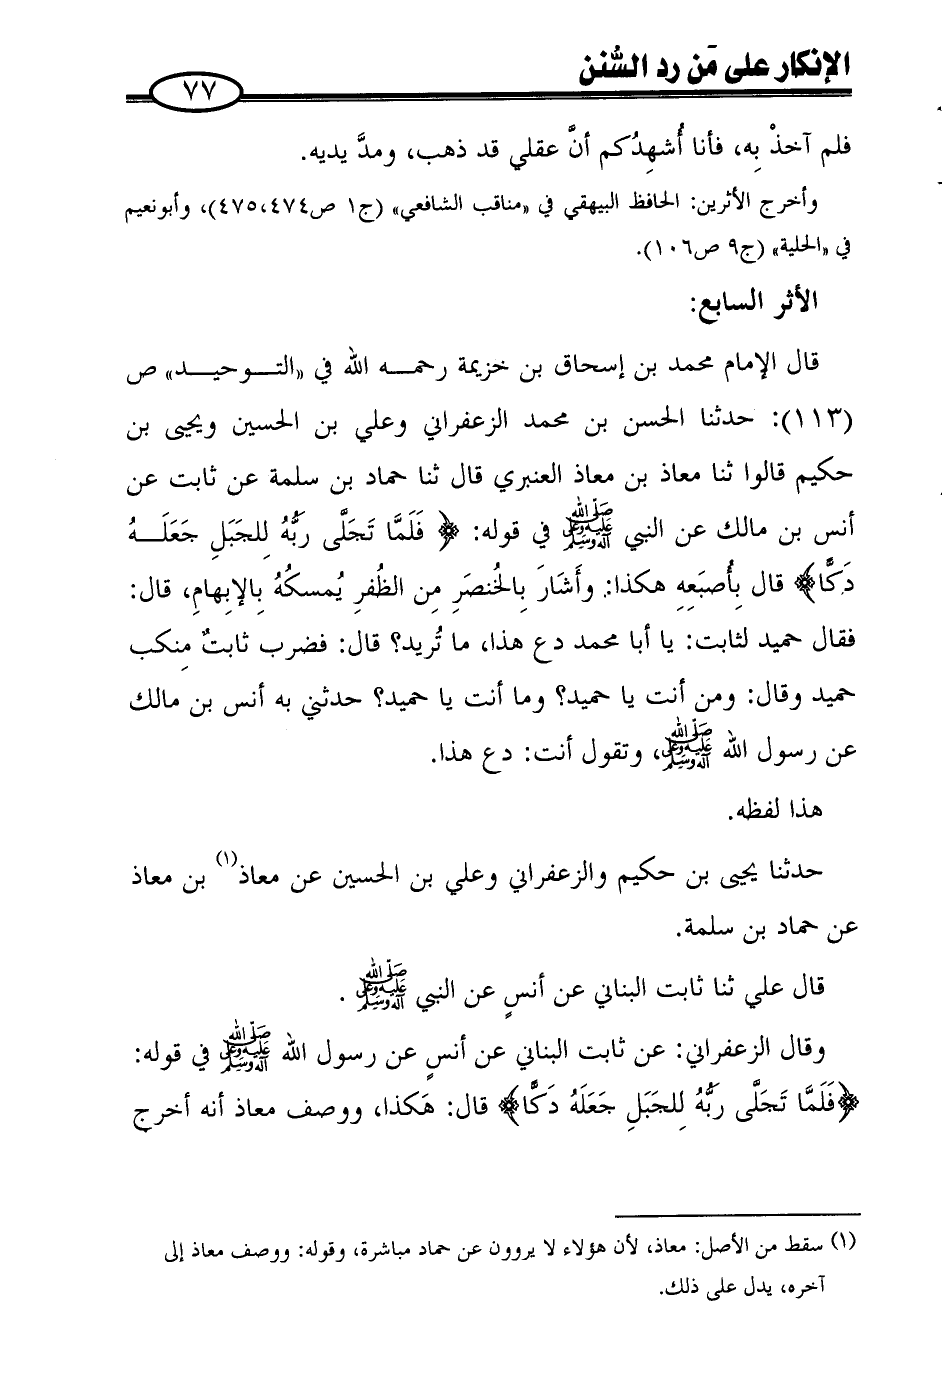 الإنكار على مَن رد السُّنن
٧٧
فلم آخذْ بِه، فأنا أُشهِدُكم أنَّ عقلي قد ذهب، ومدَّ يديه.
وأخرج الأثرين: الحافظ البيهقي في «مناقب الشافعي» (ج١ ص٤٧٤،٤٧٥)، وأبونعيم
في «الحلية» (ج٩ ص١٠٦).
الأثر السابع:
قال الإمام محمد بن إسحاق بن خزيمة رحمـــه الله في «التـــوحيـــد» ص
(١١٣): حدثنا الحسن بن محمد الزعفراني وعلي بن الحسين ويحيى بن
حكيم قالوا ثنا معاذ بن معاذ العنبري قال ثنا حماد بن سلمة عن ثابت عن
أنس بن مالك عن النبي صلى الله عليه وآله وسلم في قوله: ﴿ فَلَمَّا تَجَلَّى رَبُّهُ لِلجَبَلِ جَعَلَـــهُ
دَكًّا﴾ قال بِأُصبَعِهِ هكذا: وأَشَارَ بِالخُنصَرِ مِن الظُفرِ يُمسكُهُ بِالإبهامِ، قال:
فقال حميد لثابت: يا أبا محمد دع هذا، ما تُريد؟ قال: فضرب ثابتٌ مِنكب
حميد وقال: ومن أنت يا حميد؟ وما أنت يا حميد؟ حدثني به أنس بن مالك
عن رسول الله صلى الله عليه وآله وسلم، وتقول أنت: دع هذا.
هذا لفظه.
حدثنا يحيى بن حكيم والزعفراني وعلي بن الحسين عن معاذ(١) بن معاذ
عن حماد بن سلمة.
قال علي ثنا ثابت البناني عن أنسٍ عن النبي صلى الله عليه وآله وسلم .
وقال الزعفراني: عن ثابت البناني عن أنسٍ عن رسول الله صلى الله عليه وآله وسلم في قوله:
﴿فَلَمَّا تَجَلَّى رَبُّهُ لِلجَبَلِ جَعَلَهُ دَكًّا﴾ قال: هَكذا، ووصف معاذ أنه أخرج
(١) سقط من الأصل: معاذ، لأن هؤلاء لا يروون عن حماد مباشرة، وقوله: ووصف معاذ إلى
آخره، يدل على ذلك.